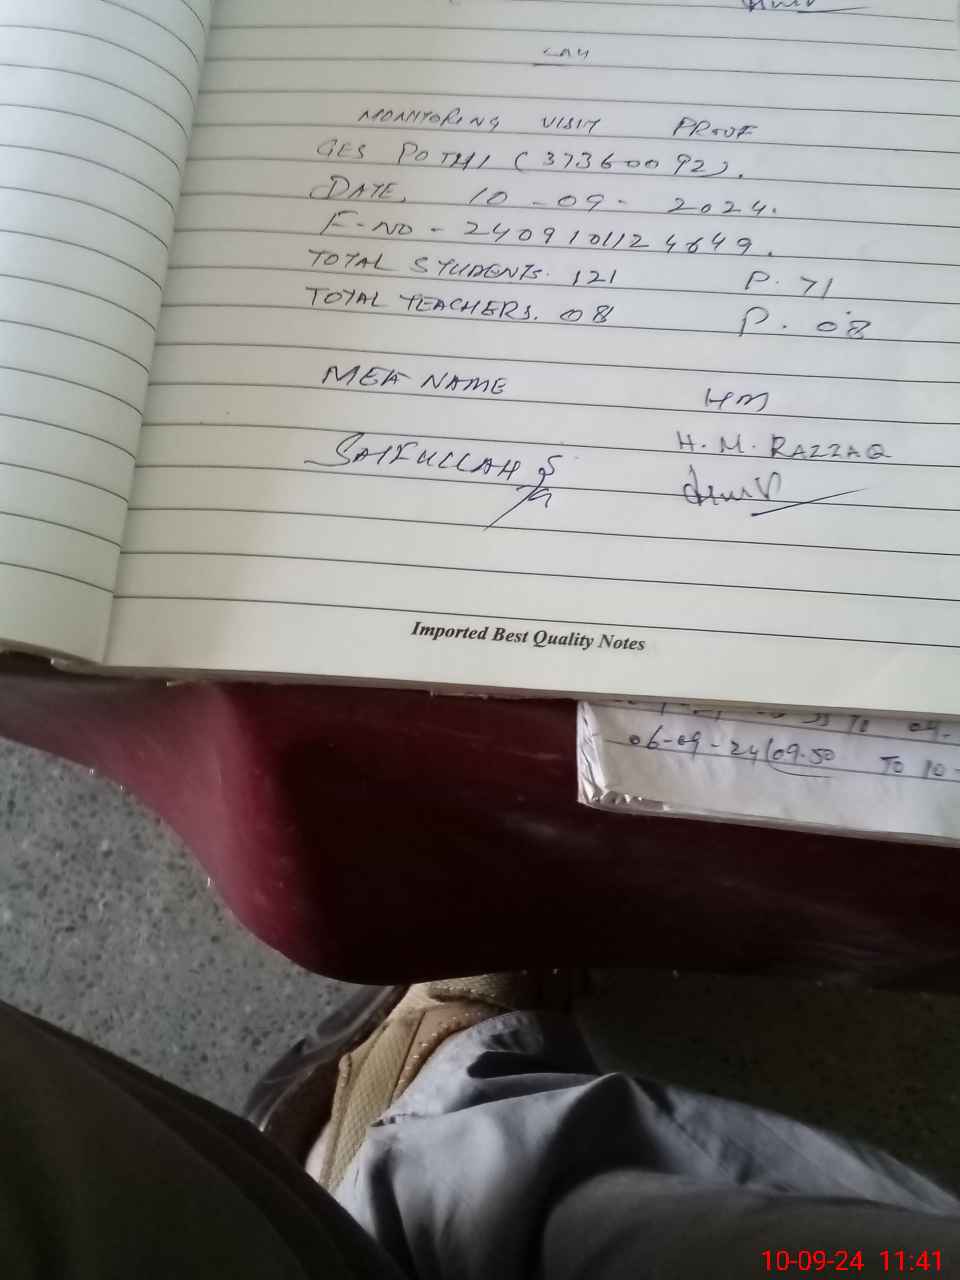 MONITORING VISIT PROOF
GES POTHI (37360092).
DATE. 10-09-2024.
F-NO - 2409101124649.
TOTAL STUDENTS. 121 P. 71
TOTAL TEACHERS. 08 P. 08
MEA NAME HM
SAIFULLAH H.M. RAZZAQ
Imported Best Quality Notes
06-09-24 (09.50 TO 10-
10-09-24 11:41